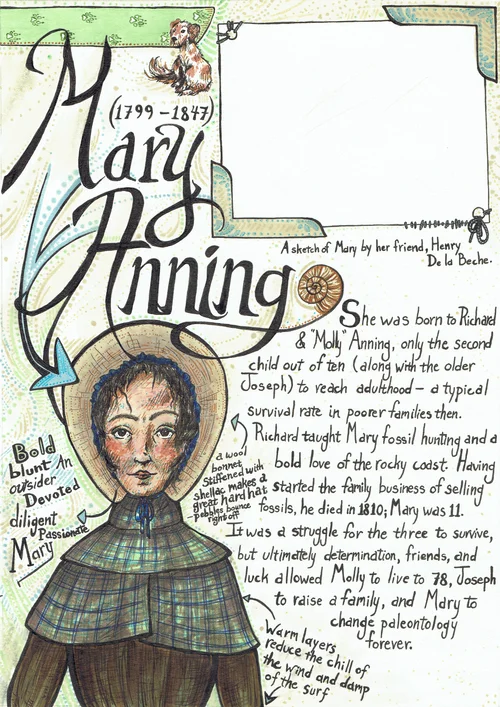 Mary
(1799-1847)
Anning
A sketch of Mary by her friend, Henry
De la Beche.
She was born to Richard
& "Molly" Anning, only the second
child out of ten (along with the older
Joseph) to reach adulthood - a typical
survival rate in poorer families then.
Richard taught Mary fossil hunting and a
bold love of the rocky coast. Having
started the family business of selling
fossils, he died in 1810; Mary was 11.
It was a struggle for the three to survive,
but ultimately determination, friends, and
luck allowed Molly to live to 78, Joseph
to raise a family, and Mary to
change paleontology
forever.
Bold
blunt An
outsider
Devoted
diligent
Passionate
Mary
a wool
bonnet
stiffened with
shellac makes a
great hard hat
- pebbles bounce
right off
Warm layers
reduce the chill of
the wind and damp
of the surf